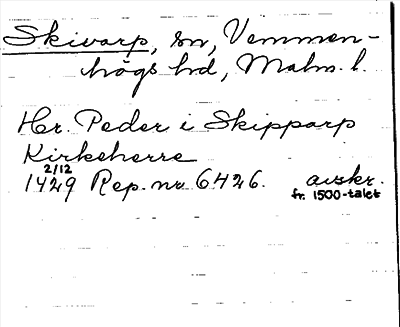 Skivarp, sn, Vemmen-
högs hd, Malm. l.
Hr. Peder i Skipparp
Kirkeherre
2/12
1429 Rep. nr 6426. avskr.
fr. 1500-talet